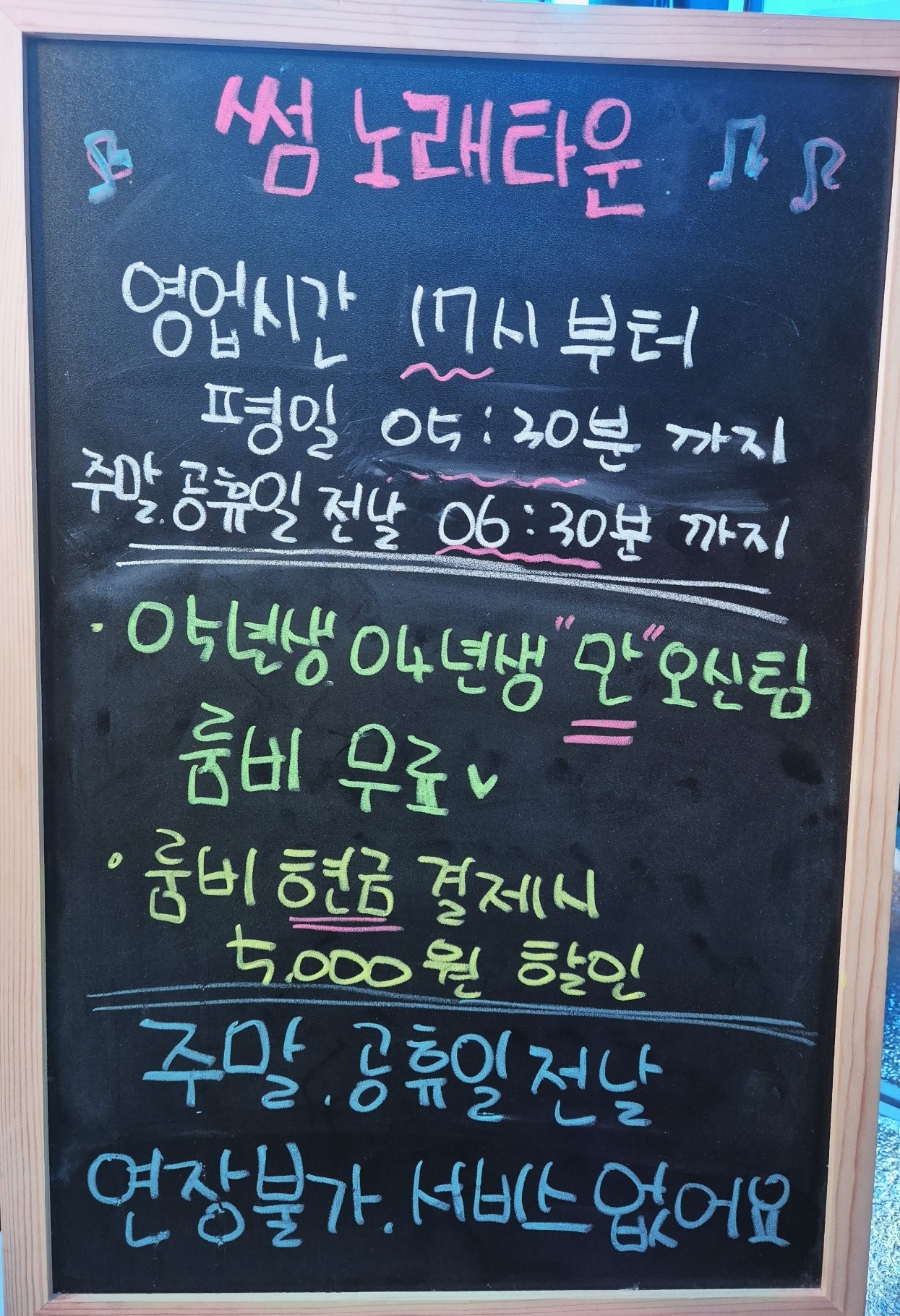 썸 노래타운
영업시간 17시 부터
평일 05:30분 까지
주말.공휴일 전날 06:30분 까지
· 05년생.04년생 "만" 오신팀
룸비 무료
· 룸비 현금 결제시
5,000원 할인
주말.공휴일 전날
연장불가.서비스 없어요